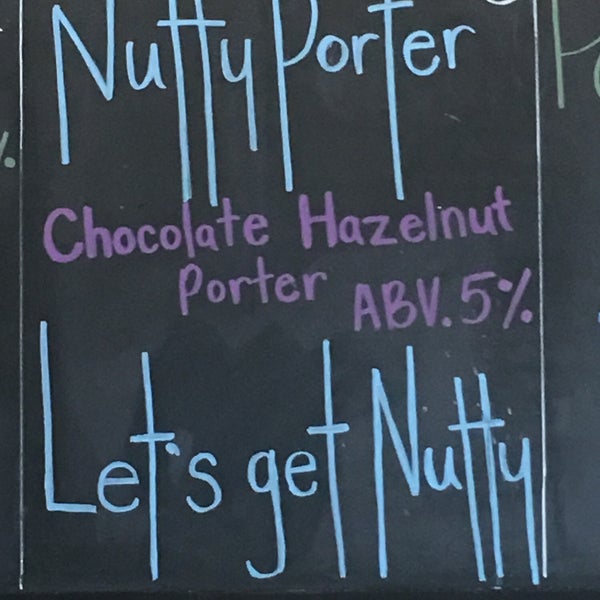 Nutty Porter
Chocolate Hazelnut
Porter ABV. 5%
Let's get Nutty